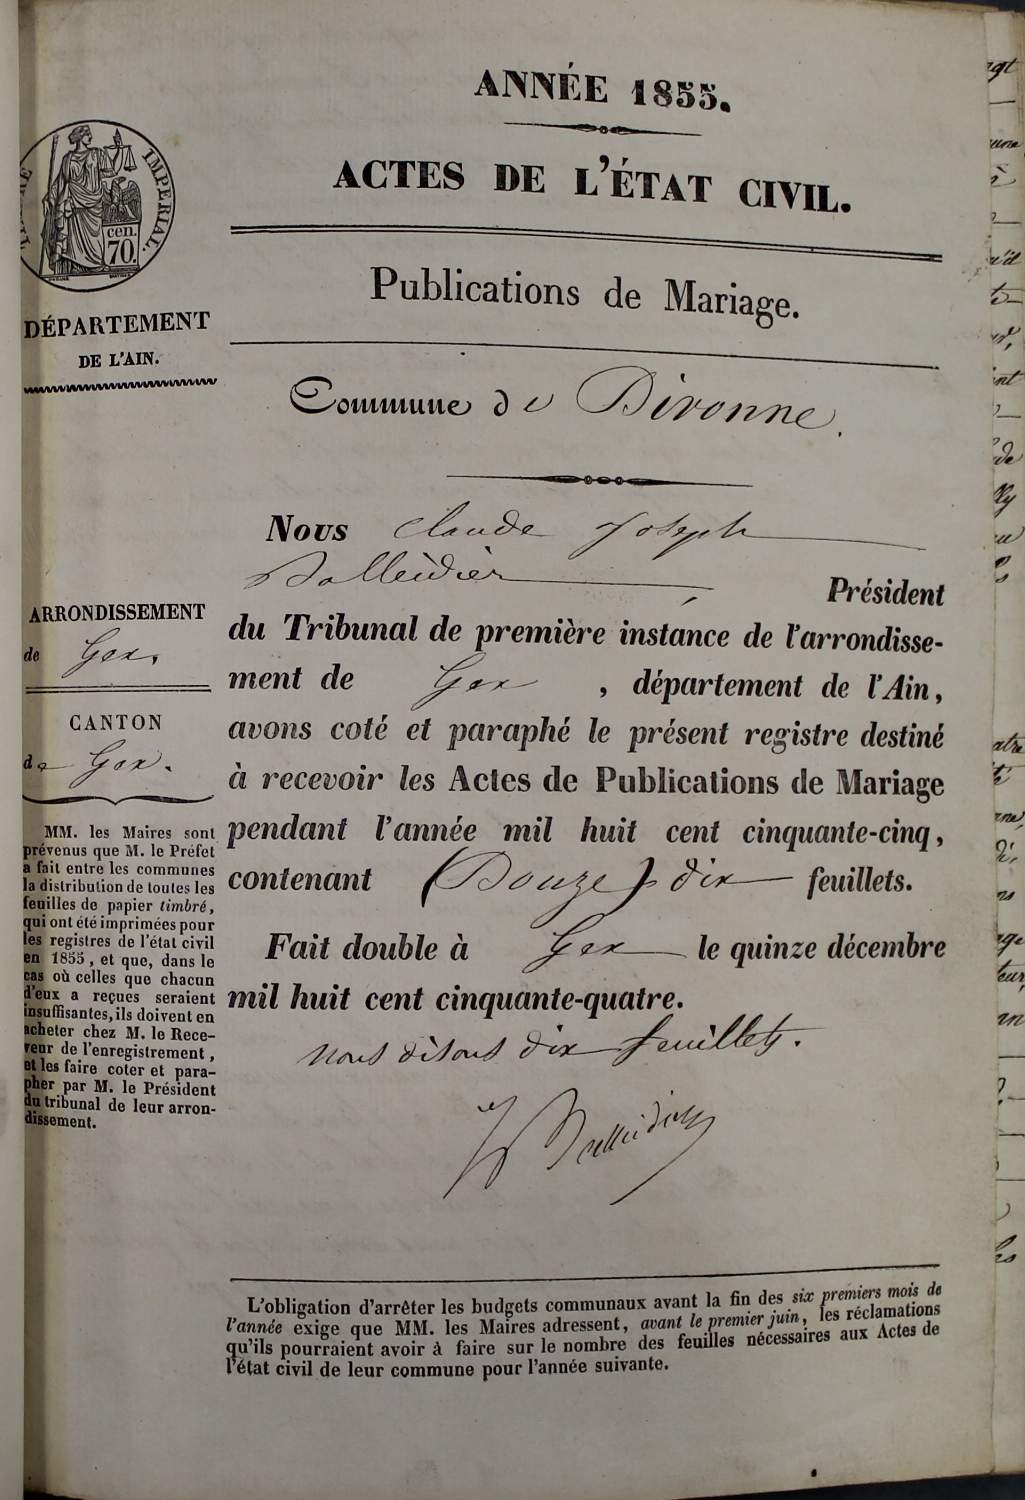 ANNÉE 1855.
ACTES DE L'ÉTAT CIVIL.
IMPERIAL.
cen.
70.
Publications de Mariage.
DÉPARTEMENT
DE L'AIN.
Commune de Divonne.
Nous Claude Joseph
Balleidier Président
du Tribunal de première instance de l'arrondisse-
ment de Gex, département de l'Ain,
avons coté et paraphé le présent registre destiné
à recevoir les Actes de Publications de Mariage
pendant l'année mil huit cent cinquante-cinq,
contenant (Douze) dix feuillets.
Fait double à Gex le quinze décembre
mil huit cent cinquante-quatre.
nous disons dix feuillets.
Balleidier
ARRONDISSEMENT
de Gex.
CANTON
de Gex.
MM. les Maires sont
prévenus que M. le Préfet
a fait entre les communes
la distribution de toutes les
feuilles de papier timbré,
qui ont été imprimées pour
les registres de l'état civil
en 1855, et que, dans le
cas où celles que chacun
d'eux a reçues seraient
insuffisantes, ils doivent en
acheter chez M. le Rece-
veur de l'enregistrement,
et les faire coter et para-
pher par M. le Président
du tribunal de leur arron-
dissement.
L'obligation d'arrêter les budgets communaux avant la fin des six premiers mois de
l'année exige que MM. les Maires adressent, avant le premier juin, les réclamations
qu'ils pourraient avoir à faire sur le nombre des feuilles nécessaires aux Actes de
l'état civil de leur commune pour l'année suivante.